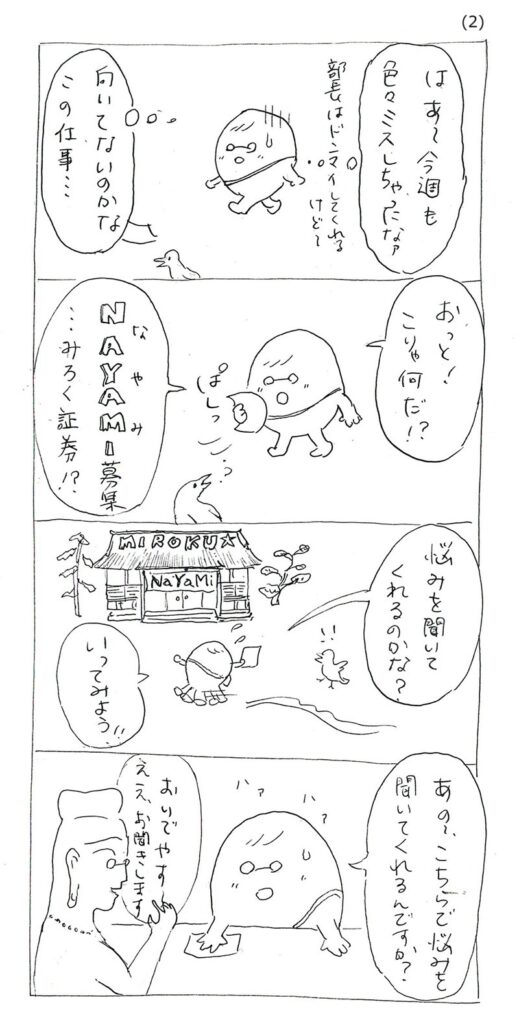 (2)
はあ〜今週も
色々ミスしちゃったなァ
部長はドンマイしてくれる
けど〜
向いてないのかな
この仕事…
おっと！
こりゃ何だ！？
ぱしっ
？
NAYAMI募集
なやみ
…みろく証券！？
悩みを聞いて
くれるのかな？
！！
MIROKU☆
NaYaMi
いってみよう！！
あの〜、こちらで悩みを
聞いてくれるんですか？
ハァ
ハァ
おいでやす
ええ、お聞きします